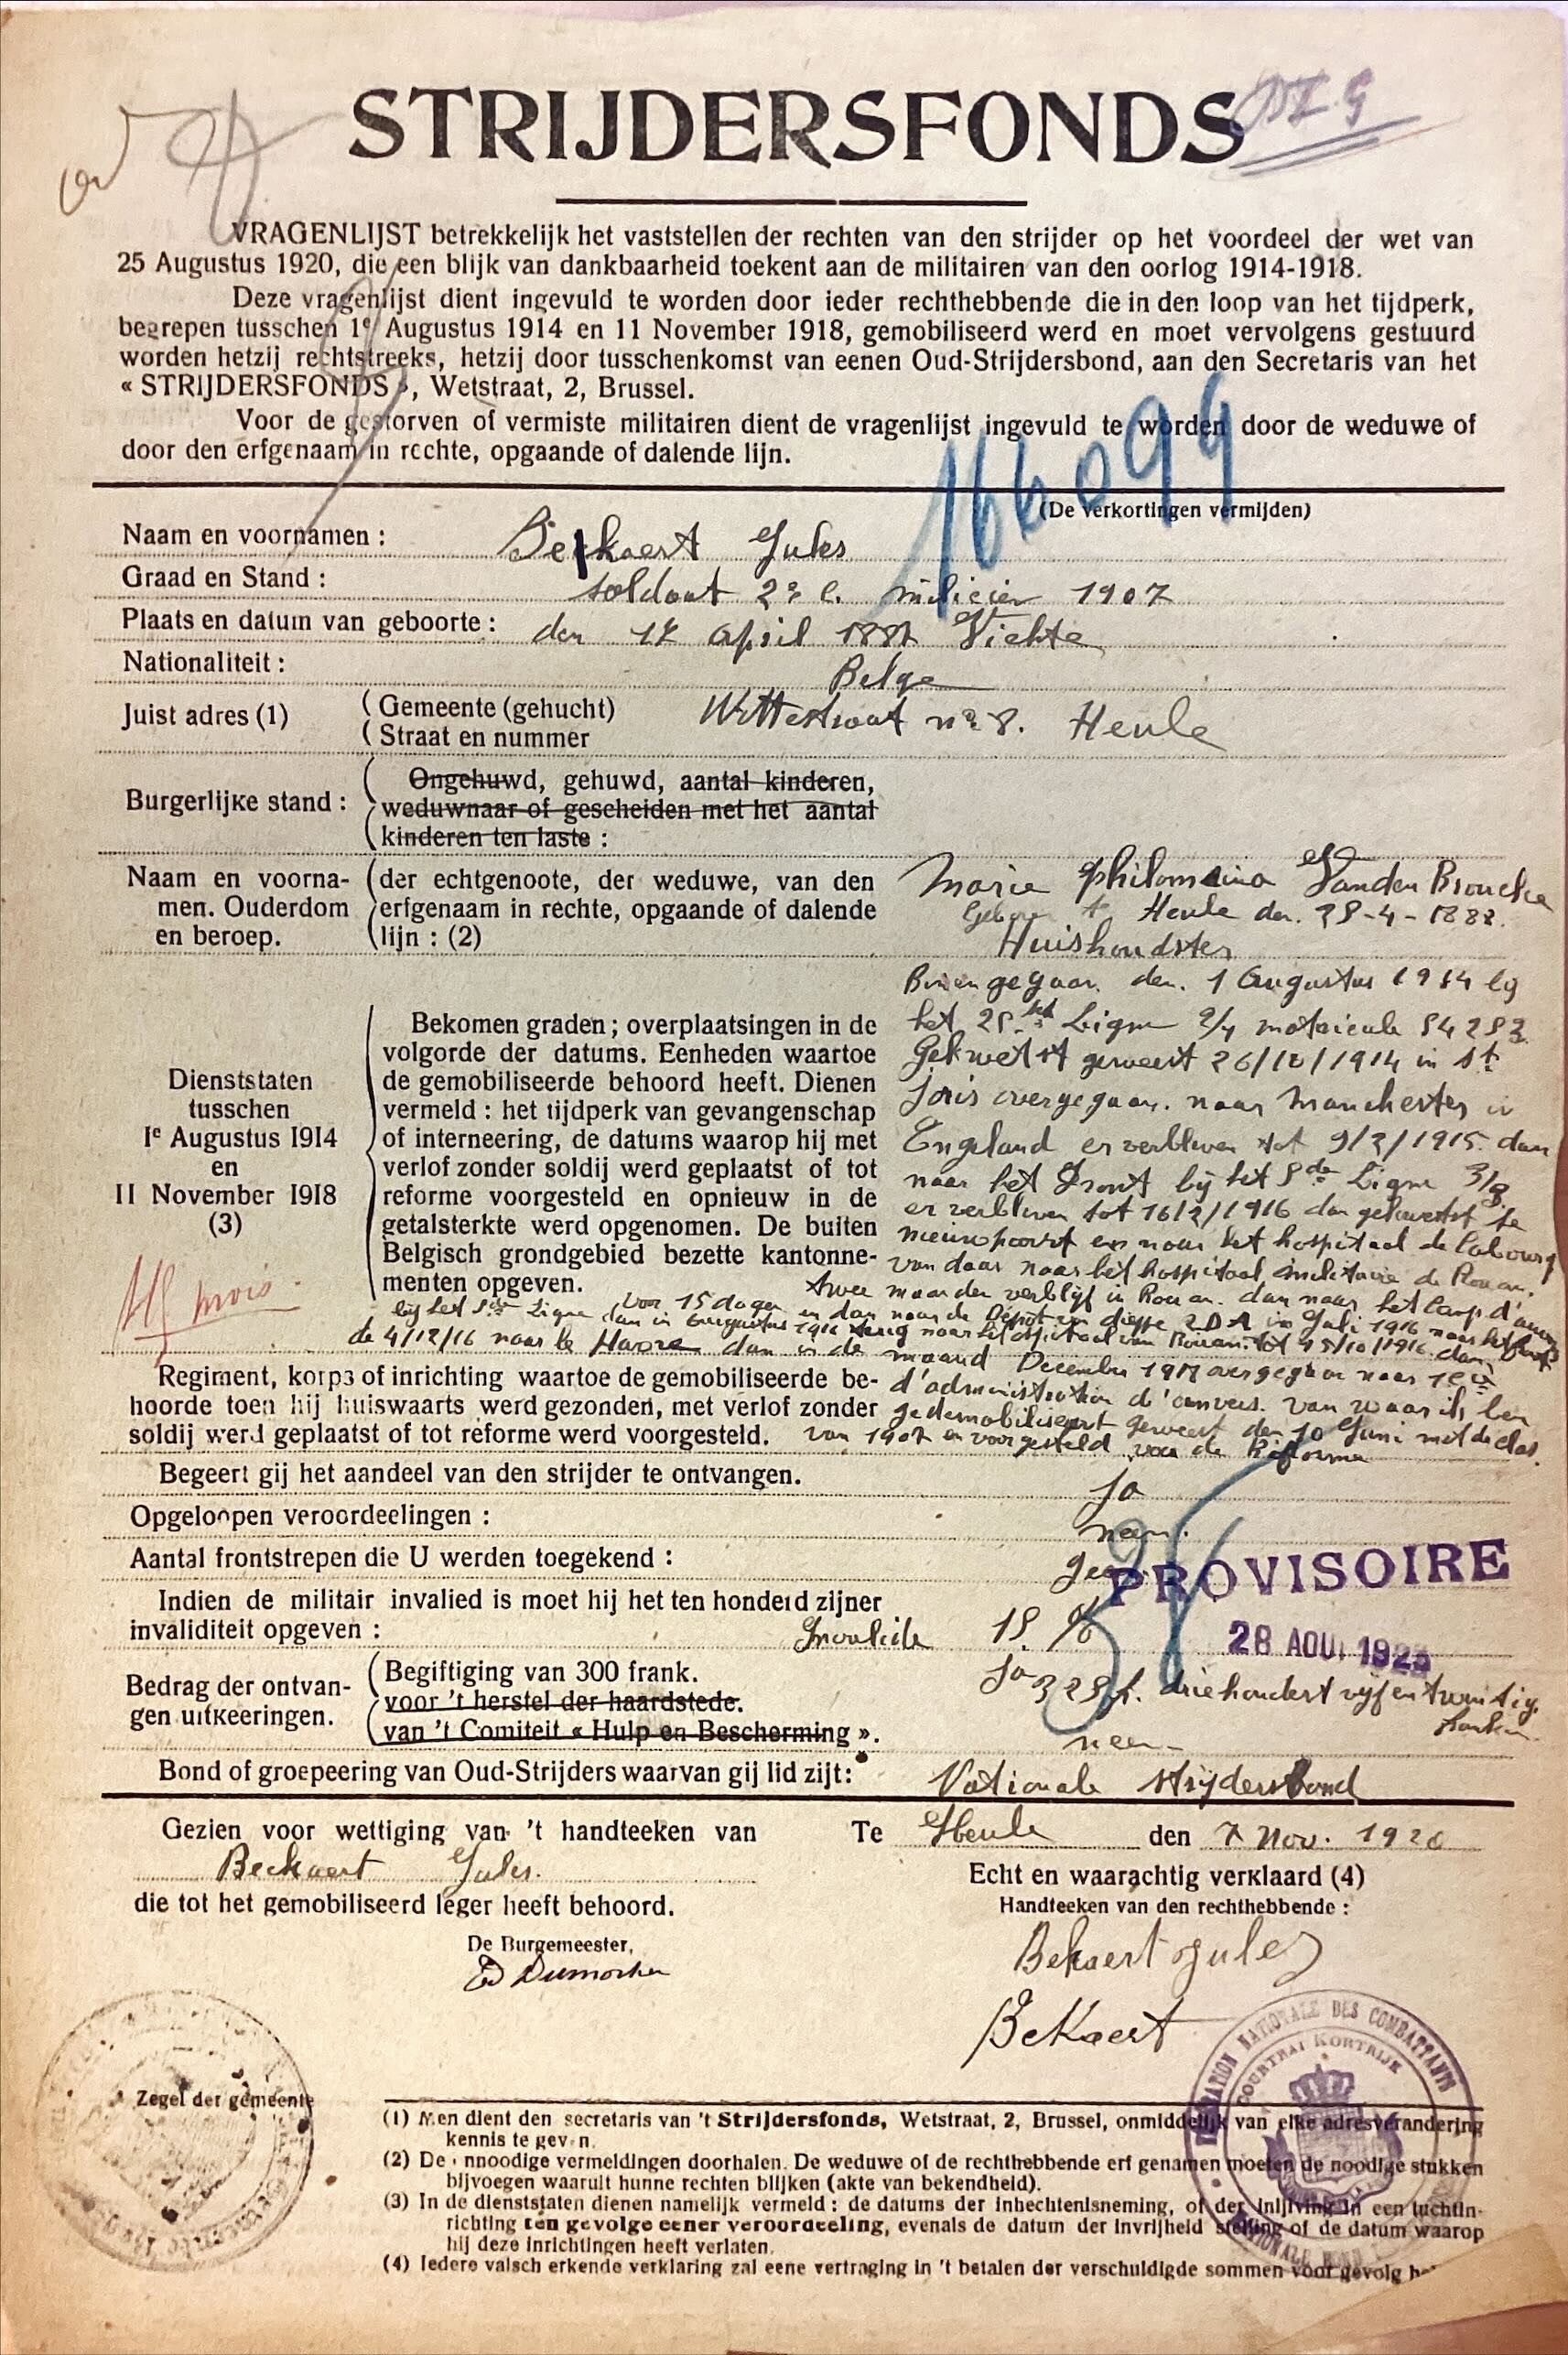 STRIJDERSFONDS
VRAGENLIJST betrekkelijk het vaststellen der rechten van den strijder op het voordeel der wet van
25 Augustus 1920, die een blijk van dankbaarheid toekent aan de militairen van den oorlog 1914-1918.
Deze vragenlijst dient ingevuld te worden door ieder rechthebbende die in den loop van het tijdperk,
begrepen tusschen 1e Augustus 1914 en 11 November 1918, gemobiliseerd werd en moet vervolgens gestuurd
worden hetzij rechtstreeks, hetzij door tusschenkomst van eenen Oud-Strijdersbond, aan den Secretaris van het
« STRIJDERSFONDS », Wetstraat, 2, Brussel.
Voor de gestorven of vermiste militairen dient de vragenlijst ingevuld te worden door de weduwe of
door den erfgenaam in rechte, opgaande of dalende lijn.
(De verkortingen vermijden)
Naam en voornamen : Bekaert Jules
Graad en Stand : soldaat 2e c. milicien 1907
Plaats en datum van geboorte : den 17 april 1887 Vichte
Nationaliteit : Belge
Juist adres (1) Gemeente (gehucht) Wittestraat no 8. Heule
Straat en nummer
Burgerlijke stand : Ongehuwd, gehuwd, aantal kinderen,
weduwnaar of gescheiden met het aantal
kinderen ten laste :
Naam en voorna- der echtgenoote, der weduwe, van den Marie Philomeina Vanden Broucke
men. Ouderdom erfgenaam in rechte, opgaande of dalende Geboren te Heule den. 28-4-1888.
en beroep. lijn : (2) Huishoudster
Binengegaan den. 1 Augustus 1914 by
Bekomen graden ; overplaatsingen in de het 28ste Ligne 2/4 matricule 54283
volgorde der datums. Eenheden waartoe Gekwetst geweest 26/10/1914 in St
Dienststaten de gemobiliseerde behoord heeft. Dienen
tusschen vermeld : het tijdperk van gevangenschap Joris overgegaan. naar Manchester in
1e Augustus 1914 of interneering, de datums waarop hij met Engeland er verbleven tot 9/2/1915 dan
en verlof zonder soldij werd geplaatst of tot naar het Front bij het 8de Ligne 3/3
11 November 1918 reforme voorgesteld en opnieuw in de er verbleven tot 16/2/1916 dan gekwetst te
(3) getalsterkte werd opgenomen. De buiten nieuwpoort en naar het hospitaal de Cabourg
Belgisch grondgebied bezette kantonne- van daar naar het hospitaal militaire de Rouan.
menten opgeven. twee maanden verblijf in Rouan. dan naar het Camp d'
mois
bij het Ligne voor 15 dagen en dan naar de Depot van dieppe 2DA in Juli 1916 naar het
dan in Augustus 1916 terug naar het ospitaal van Rouan. tot 15/10/1916 dan
de 4/12/16 naar le Havre dan in de maand December 1917 overgegaan naar
Regiment, korps of inrichting waartoe de gemobiliseerde be- d'administration d'anvers. van waar ik ben
hoorde toen hij huiswaarts werd gezonden, met verlof zonder gedemobiliseert geweest den 10 Juni met de clas.
soldij werd geplaatst of tot reforme werd voorgesteld. van 1907 en voorgesteld voor de Reforme
Begeert gij het aandeel van den strijder te ontvangen. Ja
Opgeloopen veroordeelingen : neen.
Aantal frontstrepen die U werden toegekend : geen
PROVISOIRE
Indien de militair invalied is moet hij het ten honderd zijner
invaliditeit opgeven : Invalide 15. %
28 AOUT 192
Bedrag der ontvan- Begiftiging van 300 frank. Ja 325 f. driehondert vyf en twintig.
gen uitkeeringen. voor 't herstel der haardstede. franken
van 't Comiteit « Hulp en Bescherming ». neen
Bond of groepeering van Oud-Strijders waarvan gij lid zijt: Nationale strydersbond
Gezien voor wettiging van 't handteeken van Te Heule den 7 Nov. 1920
Beckaert Jules. Echt en waarachtig verklaard (4)
die tot het gemobiliseerd leger heeft behoord. Handteeken van den rechthebbende :
De Burgemeester, Bekaert Jules
BeKaert
NATIONALE DES COMBATTANTS
COURTRAI KORTRIJK
Zegel der gemeente
(1) Men dient den secretaris van 't Strijdersfonds, Wetstraat, 2, Brussel, onmiddelijk van elke adresverandering
kennis te geven.
(2) De onnoodige vermeldingen doorhalen. De weduwe of de rechthebbende erfgenamen moeten de noodige stukken
bijvoegen waaruit hunne rechten blijken (akte van bekendheid).
(3) In de dienststaten dienen namelijk vermeld : de datums der inhechtenisneming, of der inlijving in een tuchtin-
richting ten gevolge eener veroordeeling, evenals de datum der invrijheid stelling of de datum waarop
hij deze inrichtingen heeft verlaten.
(4) Iedere valsch erkende verklaring zal eene vertraging in 't betalen der verschuldigde sommen voor gevolg